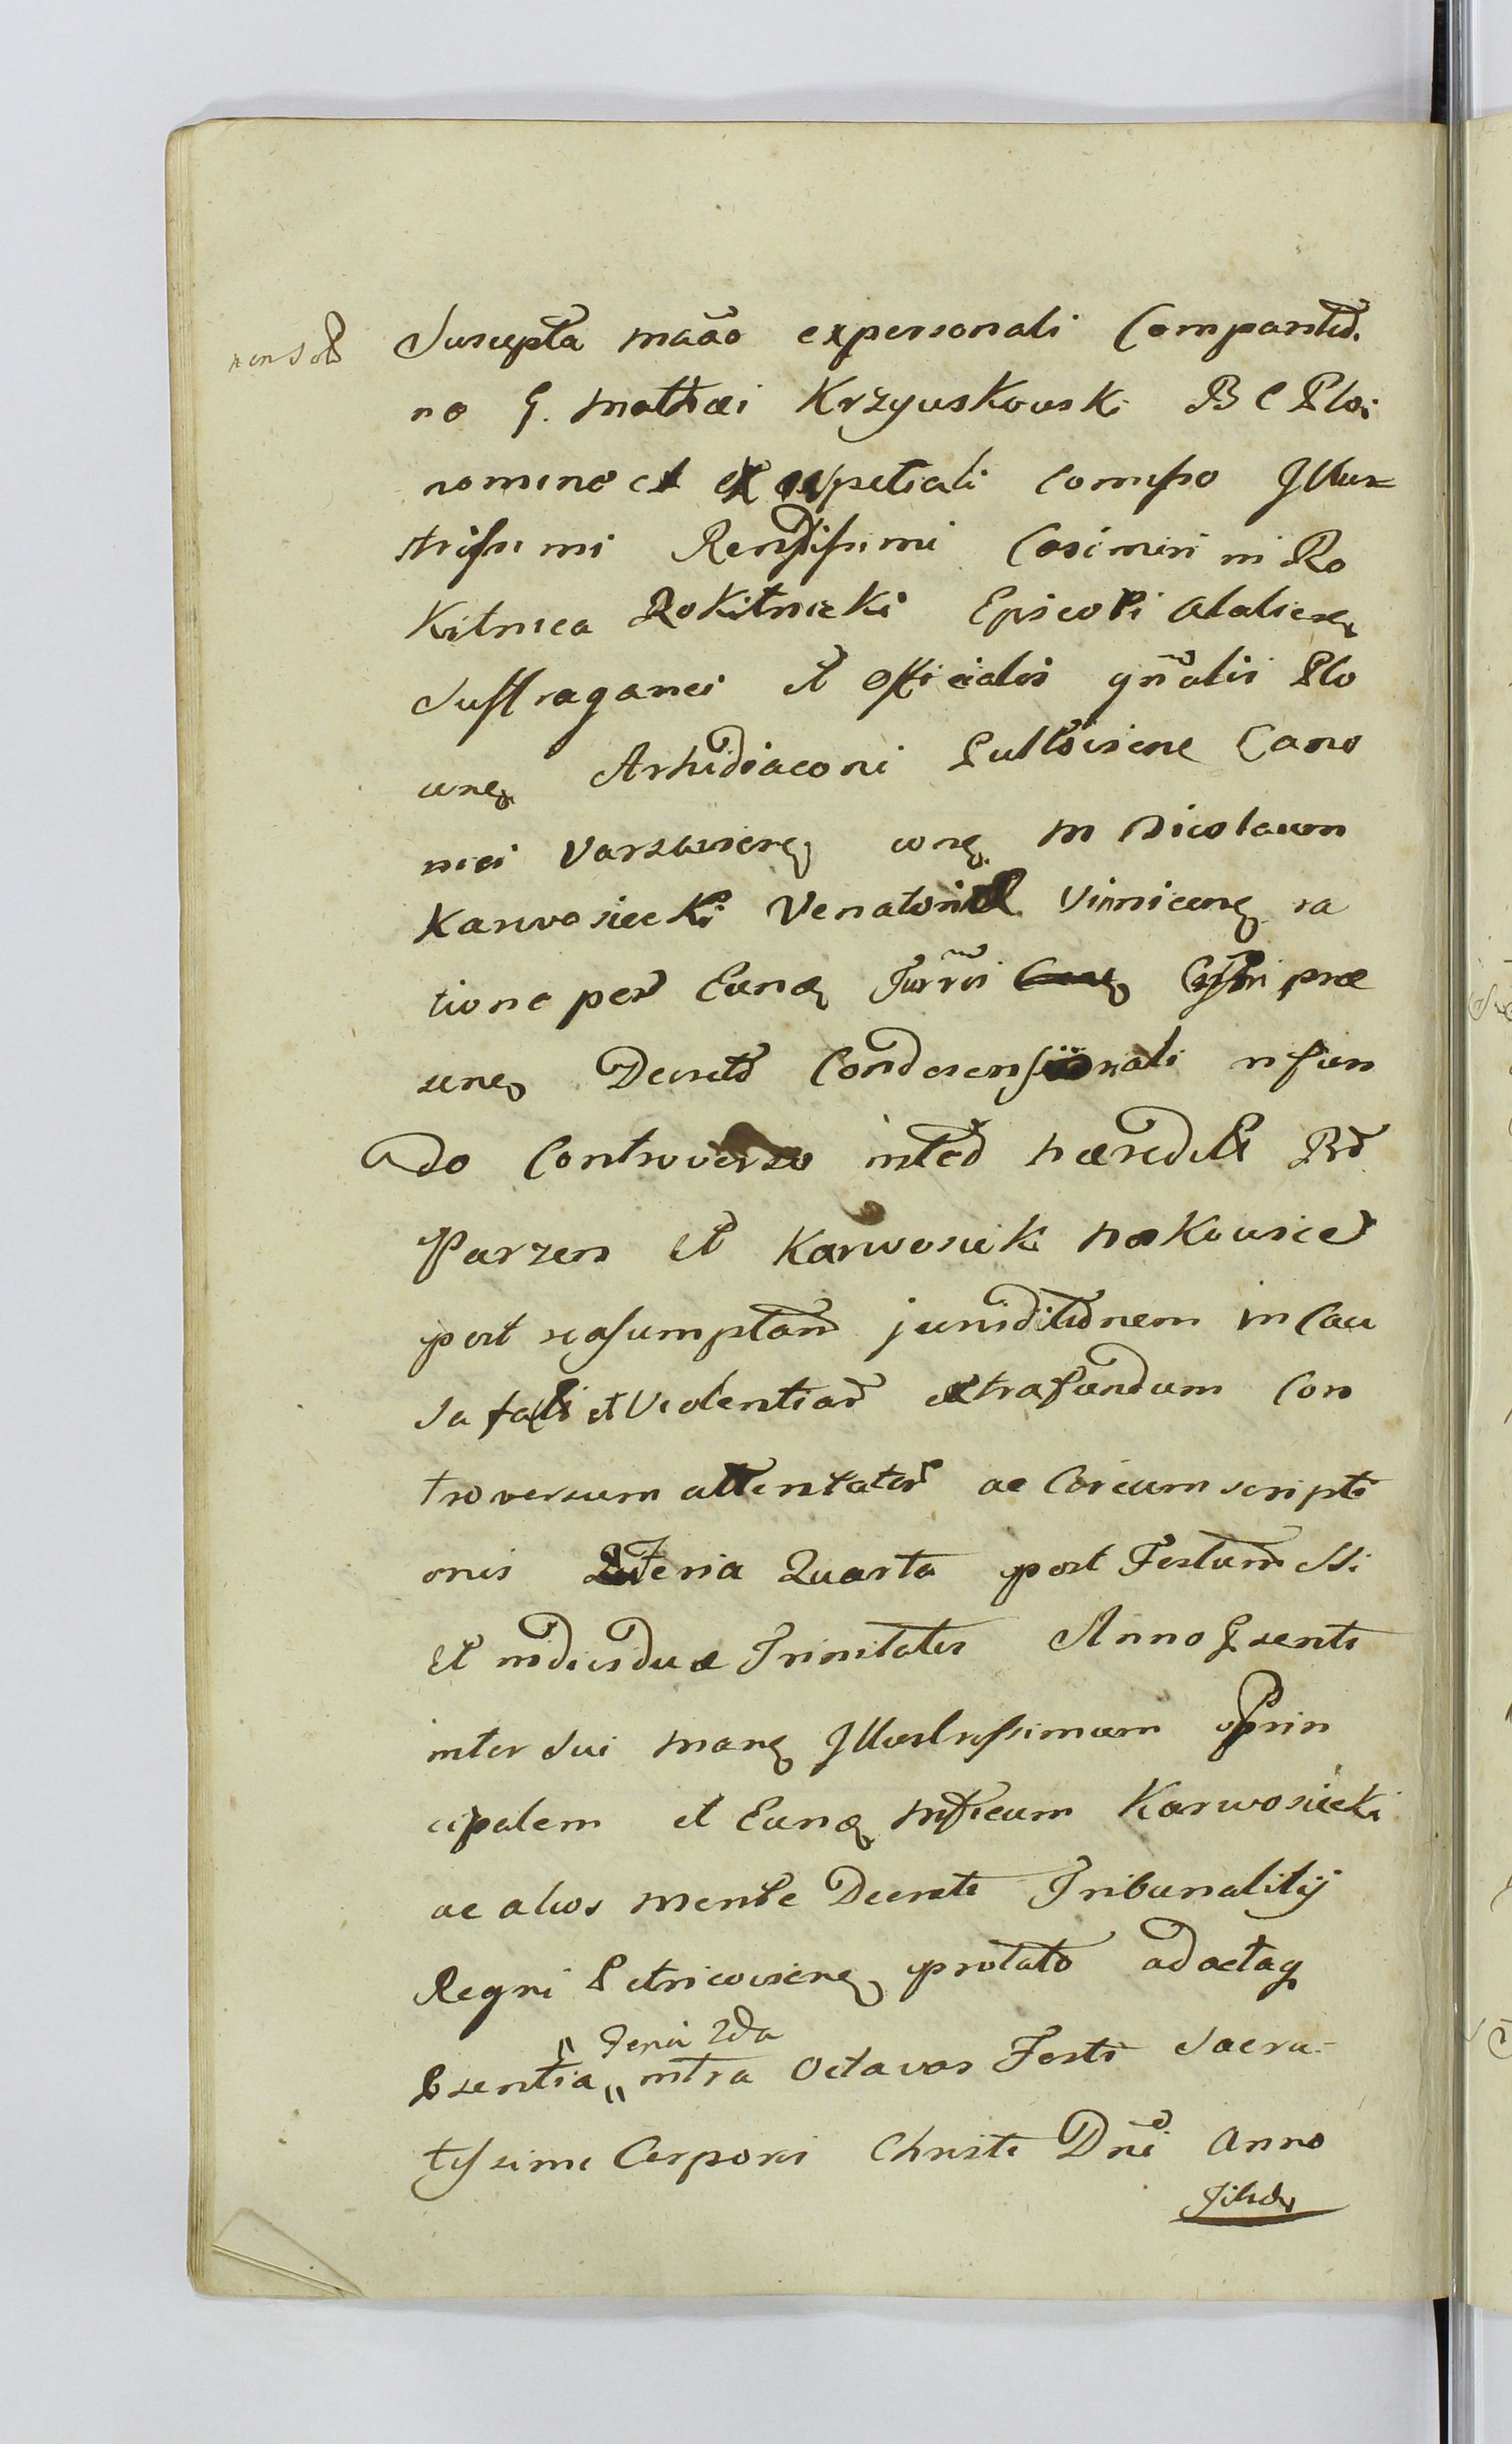 non sol
Suscepta maao expersonali Comparitio
no G. Mathæi Krzyuskowski B C Ploi
nomine et ex speciali compso Illus=
trissimi Rendissimi Casimiri in Ro
kitnica Rokitnicki Episcopi Alalien
Suffraganei et Officialis gnalis Plo
cen Archidiaconi Pultovien Cano
nici Varsavien con M Nicolaum
Karwosiecki Venatorem Vinnicen ra
tione per Eund Jurris præ
sen Decreto Condescensionali in fun
do Controverso inter hæredit Bd
Parzen et Karwosieki Nakowice
post reasumptam jurisditionem in Cau
sa facti et Violentiar extra fundum Con
troversum attentatar ac Circumscripti
onis Feria Quarta post Festum SSi
et individuæ Trinitatis Anno Psenti
inter sui Mang Illustrissimum Prin
cipalem et Eund Mficum Karwosiecki
ac alios mente Decreti Tribunalitij
Regni Petricovien prolato ad actaq
" Feria 2da
Psentia " intra Octavas Festi Sacra=
tissimi Corporis Christi Dni Anno